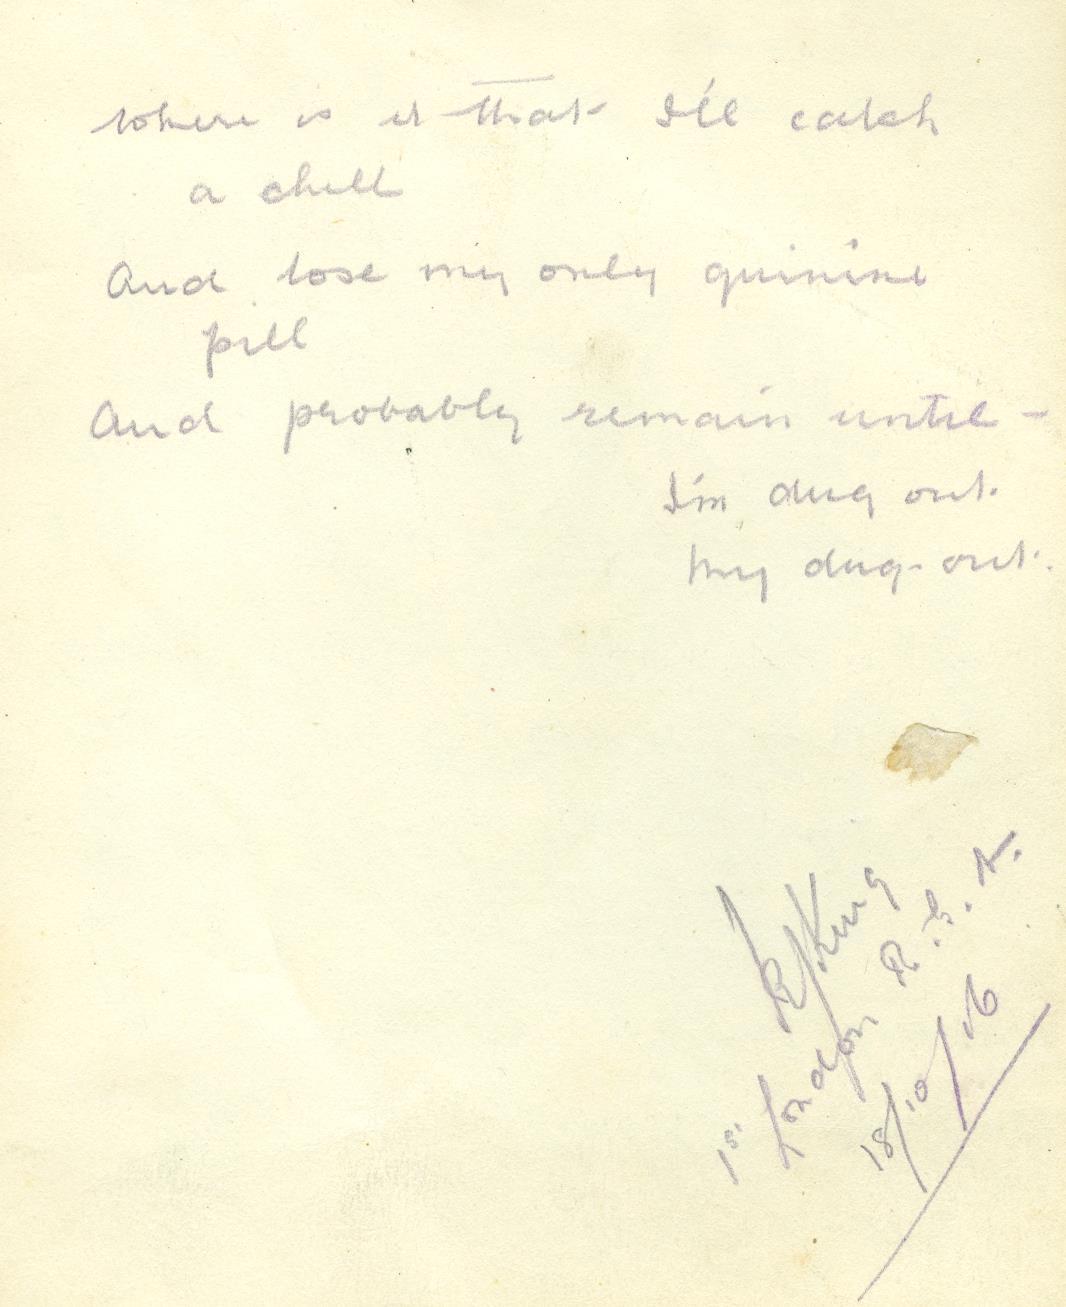 Where is it that I'll catch
a chill
And lose my only quinine
pill
And probably remain until -
I'm dug out.
My dug-out.
RJKing
1st London R.G.A.
18/10/16